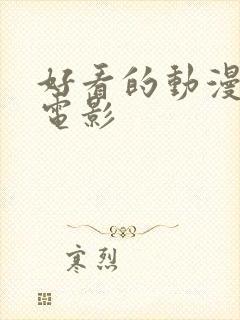 好看的動漫
電影
寒烈